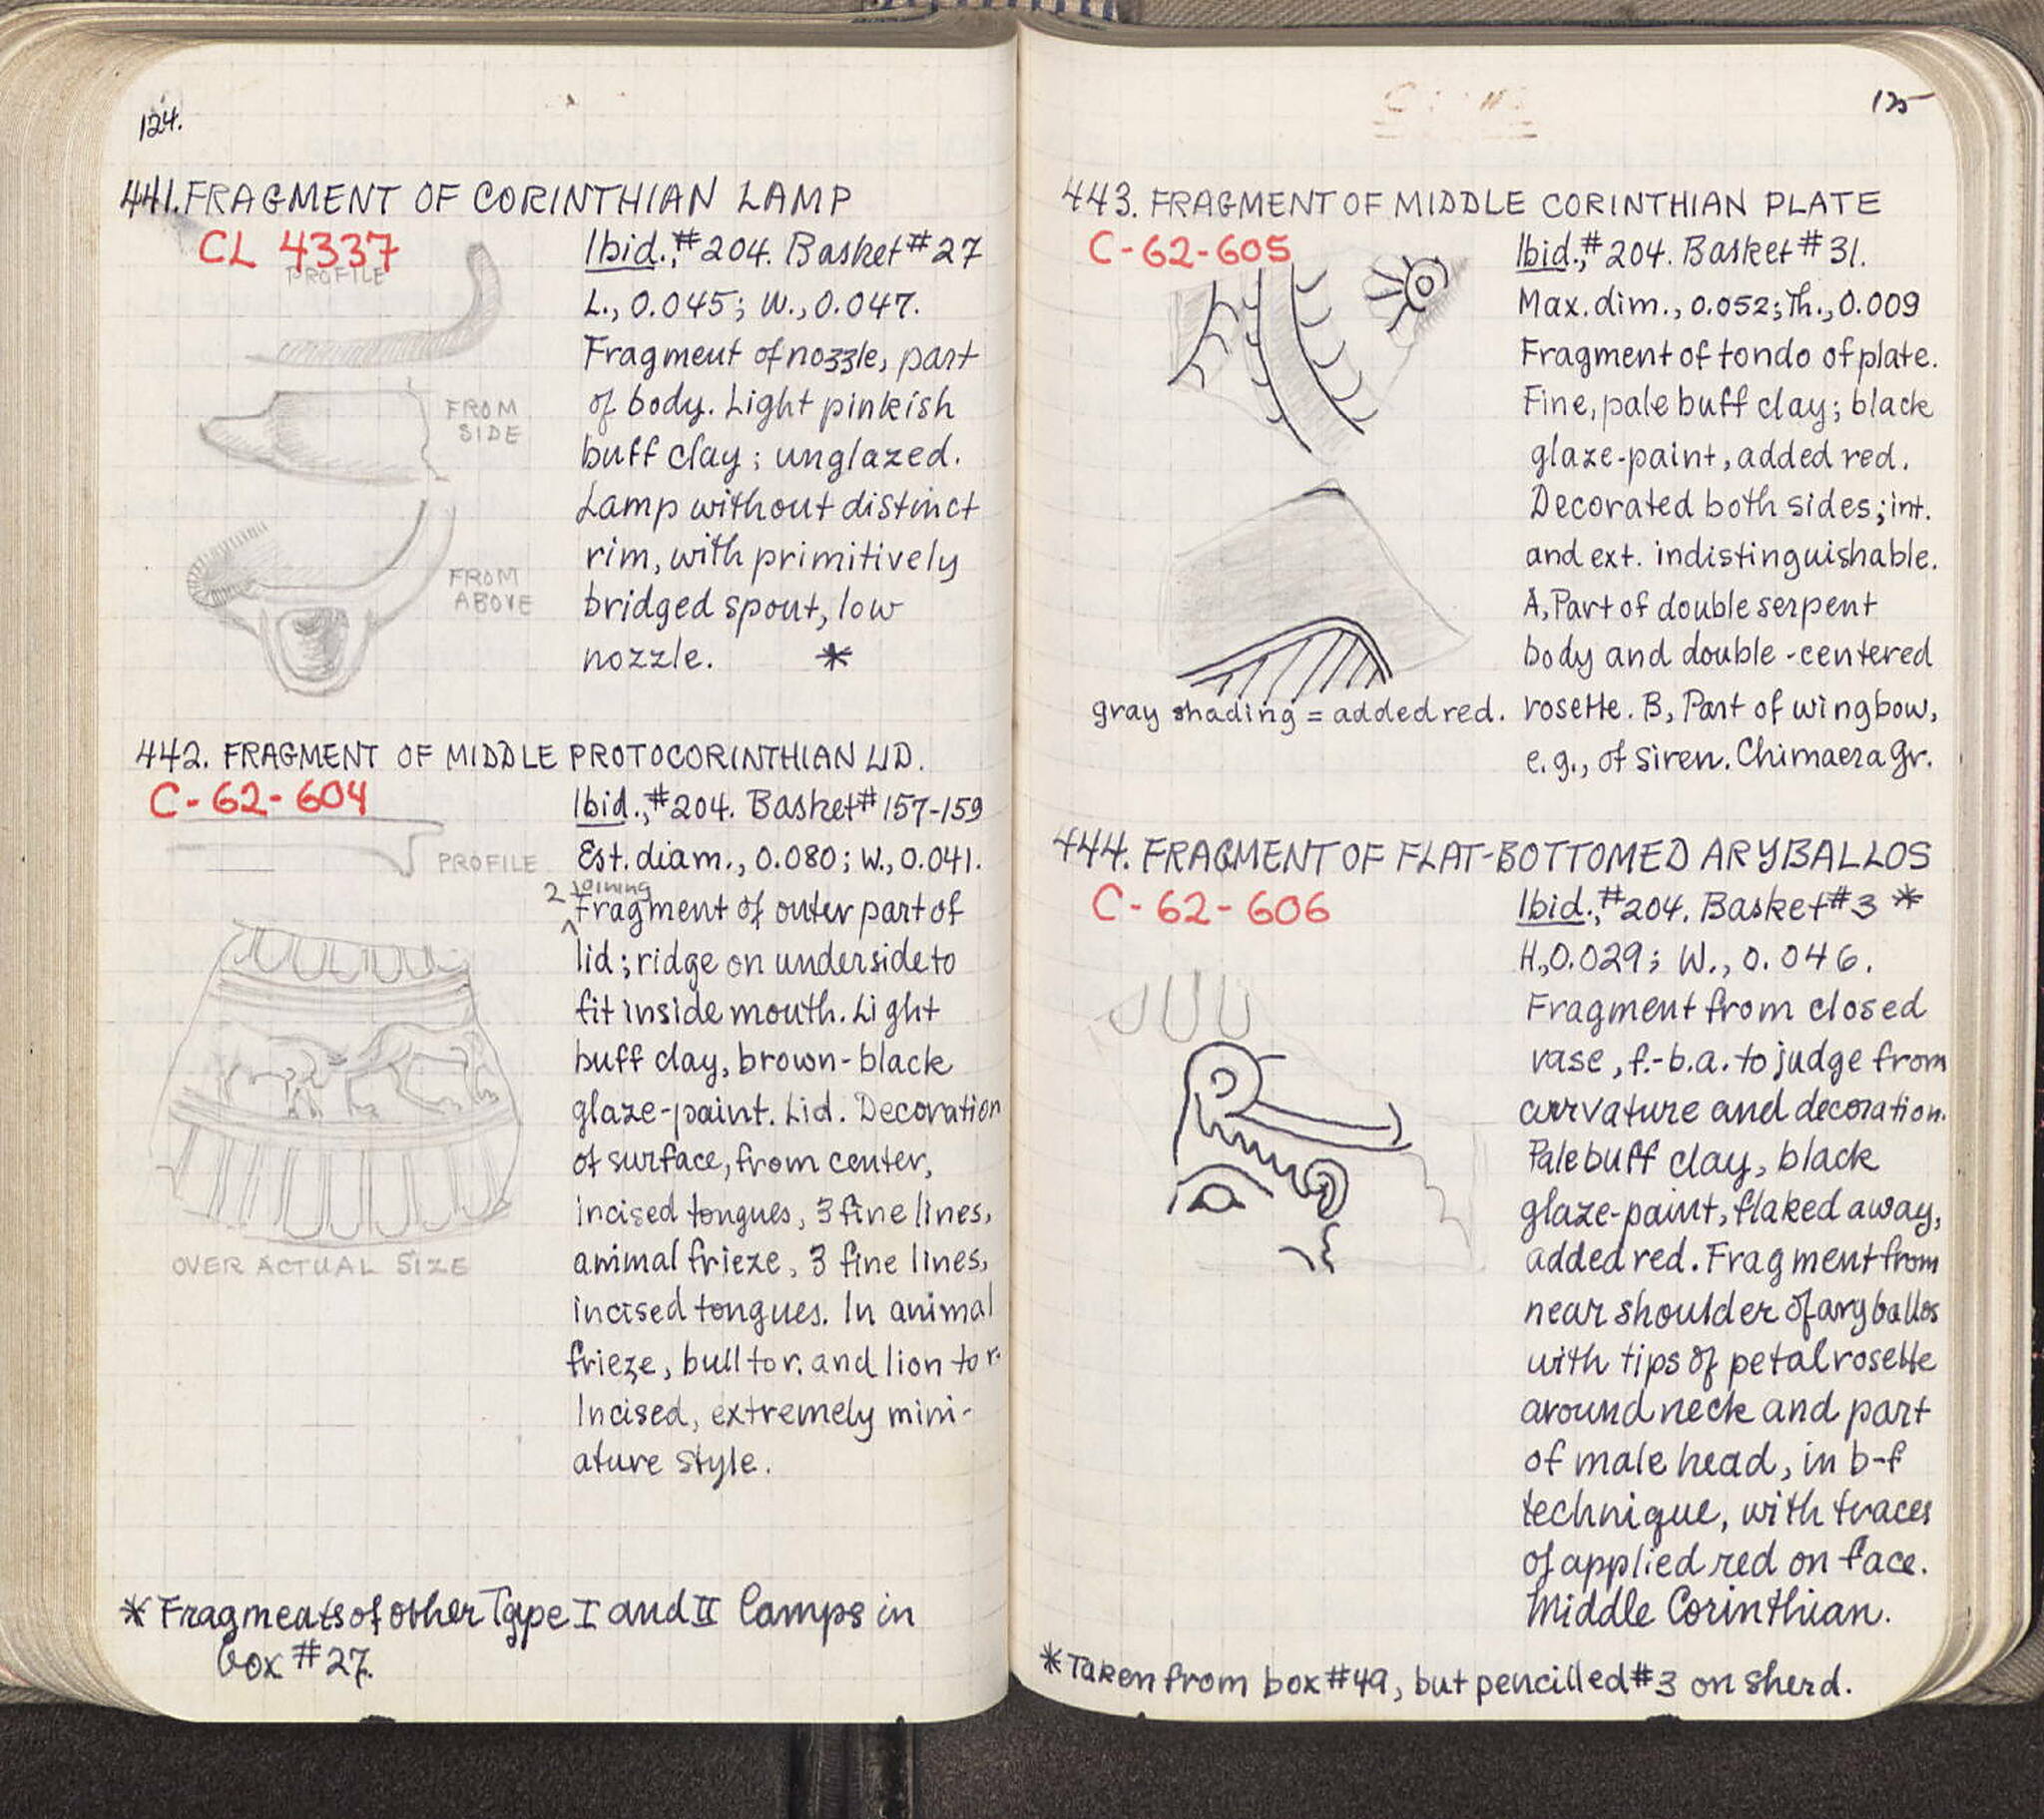 124.
441. FRAGMENT OF CORINTHIAN LAMP
CL 4337
PROFILE
FROM
SIDE
FROM
ABOVE
Ibid., #204. Basket #27
L., 0.045; W., 0.047.
Fragment of nozzle, part
of body. Light pinkish
buff clay; unglazed.
Lamp without distinct
rim, with primitively
bridged spout, low
nozzle. *
442. FRAGMENT OF MIDDLE PROTOCORINTHIAN LID.
C-62-604
PROFILE
OVER ACTUAL SIZE
Ibid., #204. Basket #157-159
Est. diam., 0.080; W., 0.041.
2 joining
Fragment of outer part of
lid; ridge on underside to
fit inside mouth. Light
buff clay, brown-black
glaze-paint. Lid. Decoration
of surface, from center,
incised tongues, 3 fine lines,
animal frieze, 3 fine lines,
incised tongues. In animal
frieze, bull to r. and lion to r.
Incised, extremely mini-
ature style.
* Fragments of other Type I and II lamps in
box #27.
125
443. FRAGMENT OF MIDDLE CORINTHIAN PLATE
C-62-605
gray shading = added red.
Ibid., #204. Basket #31.
Max. dim., 0.052; Th., 0.009
Fragment of tondo of plate.
Fine, pale buff clay; black
glaze-paint, added red.
Decorated both sides; int.
and ext. indistinguishable.
A, Part of double serpent
body and double-centered
rosette. B, Part of wingbow,
e.g., of siren. Chimaera Gr.
444. FRAGMENT OF FLAT-BOTTOMED ARYBALLOS
C-62-606
Ibid., #204. Basket #3 *
H., 0.029; W., 0.046.
Fragment from closed
vase, f.-b.a. to judge from
curvature and decoration.
Pale buff clay, black
glaze-paint, flaked away,
added red. Fragment from
near shoulder of aryballos
with tips of petal rosette
around neck and part
of male head, in b-f
technique, with traces
of applied red on face.
Middle Corinthian.
* Taken from box #49, but pencilled #3 on sherd.